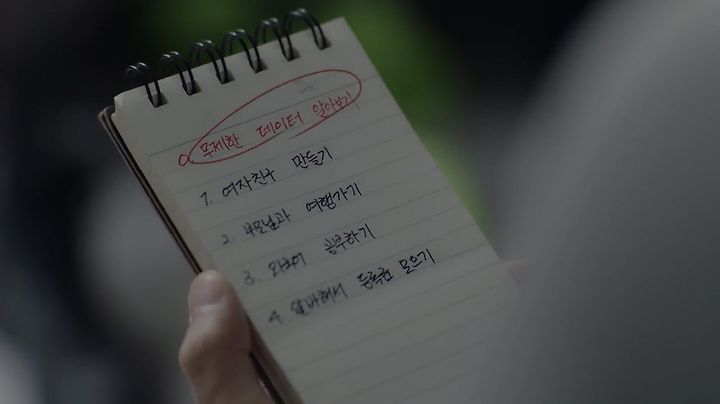 0. 무제한 데이터 알아보기
1. 여자친구 만들기
2. 부모님과 여행가기
3. 외국어 공부하기
4. 알바해서 등록금 모으기